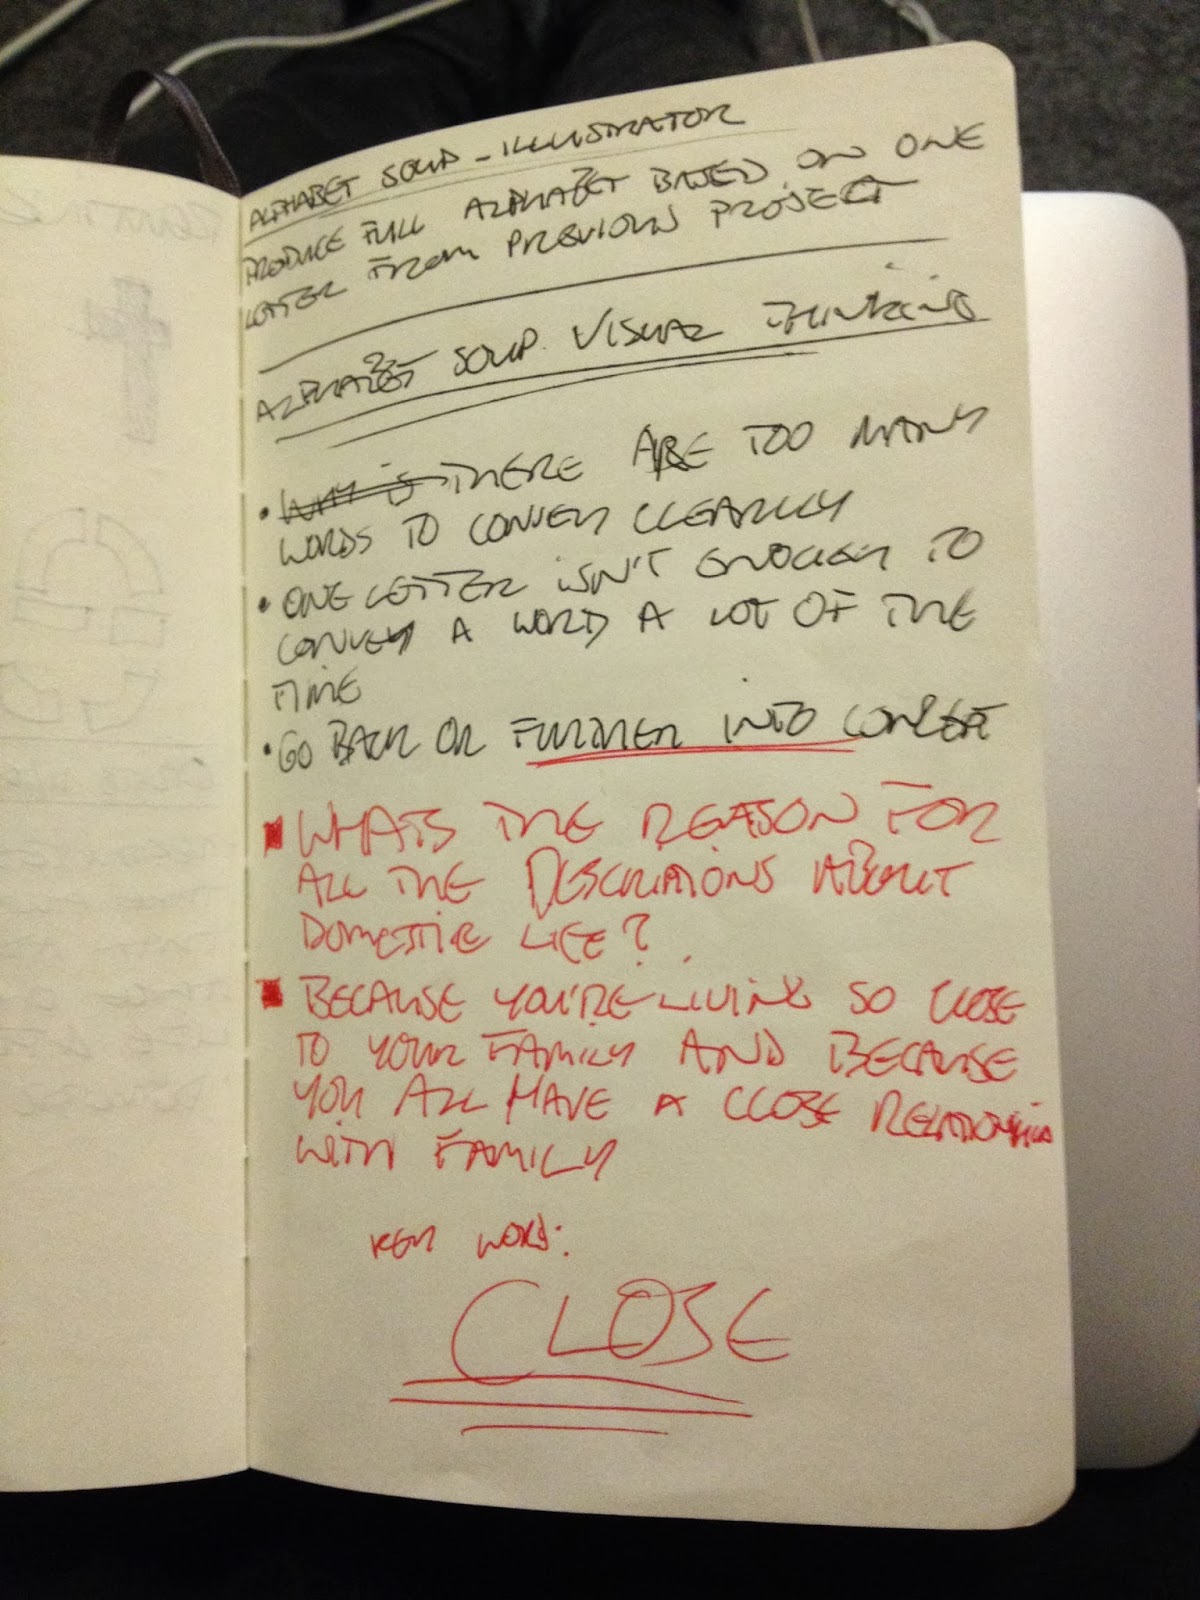 ALPHABET SOUP - ILLUSTRATOR
PRODUCE FULL ALPHABET BASED ON ONE
LETTER FROM PREVIOUS PROJECT
ALPHABET SOUP. VISUAL THINKING
• WHY IS THERE ARE TOO MANY
WORDS TO CONVEY CLEARLY
• ONE LETTER ISN'T ENOUGH TO
CONVEY A WORD A LOT OF THE
TIME
• GO BACK OR FURTHER INTO CONCEPT
WHATS THE REASON FOR
ALL THE DESCRIPTIONS ABOUT
DOMESTIC LIFE?
BECAUSE YOU'RE LIVING SO CLOSE
TO YOUR FAMILY AND BECAUSE
YOU ALL HAVE A CLOSE RELATIONSHIP
WITH FAMILY
KEY WORD:
CLOSE